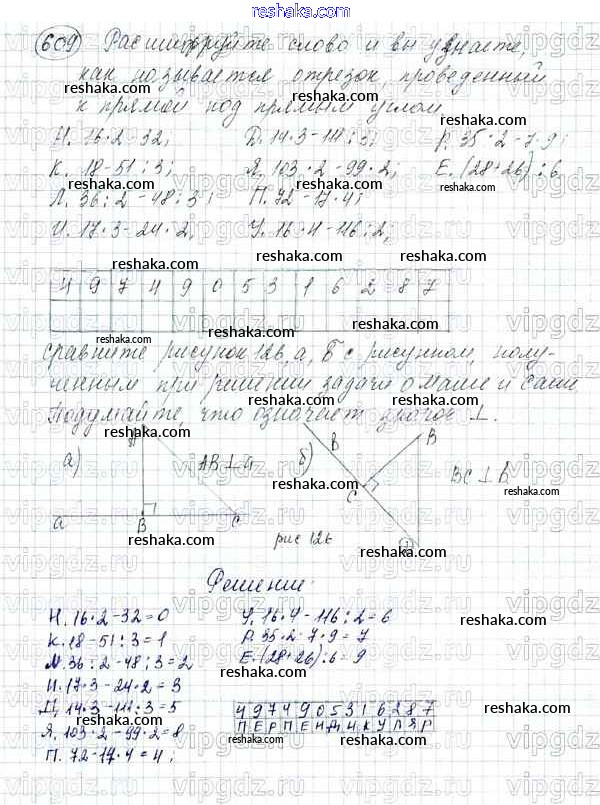 reshaka.com
609 Расшифруйте слово и вы узнаете,
как называется отрезок, проведенный
к прямой под прямым углом
Н. 16·2-32; Д. 14·3-111:3; Р. 35·2-7·9;
К. 18-51:3; Я. 103·2-99·2; Е. (28+26):6
Л. 36:2-48:3; П. 72-17·4;
И. 17·3-24·2; У. 16·4-116:2;
4 9 7 4 9 0 5 3 1 6 2 8 7
сравните рисунок 126, а, б с рисунком, полу-
ченным при решении задачи о маше и саше
Подумайте, что означает значок ⊥.
а) A AB⊥a б) B B BC⊥b
C
a B C
рис 126
Решение:
Н. 16·2-32=0 У. 16·4-116:2=6
К. 18-51:3=1 Р. 35·2-7·9=7
Л. 36:2-48:3=2 Е. (28+26):6=9
И. 17·3-24·2=3
Д. 14·3-111:3=5 4 9 7 4 9 0 5 3 1 6 2 8 7
Я. 103·2-99·2=8 П Е Р П Е Н Д И К У Л Я Р
П. 72-17·4=4;